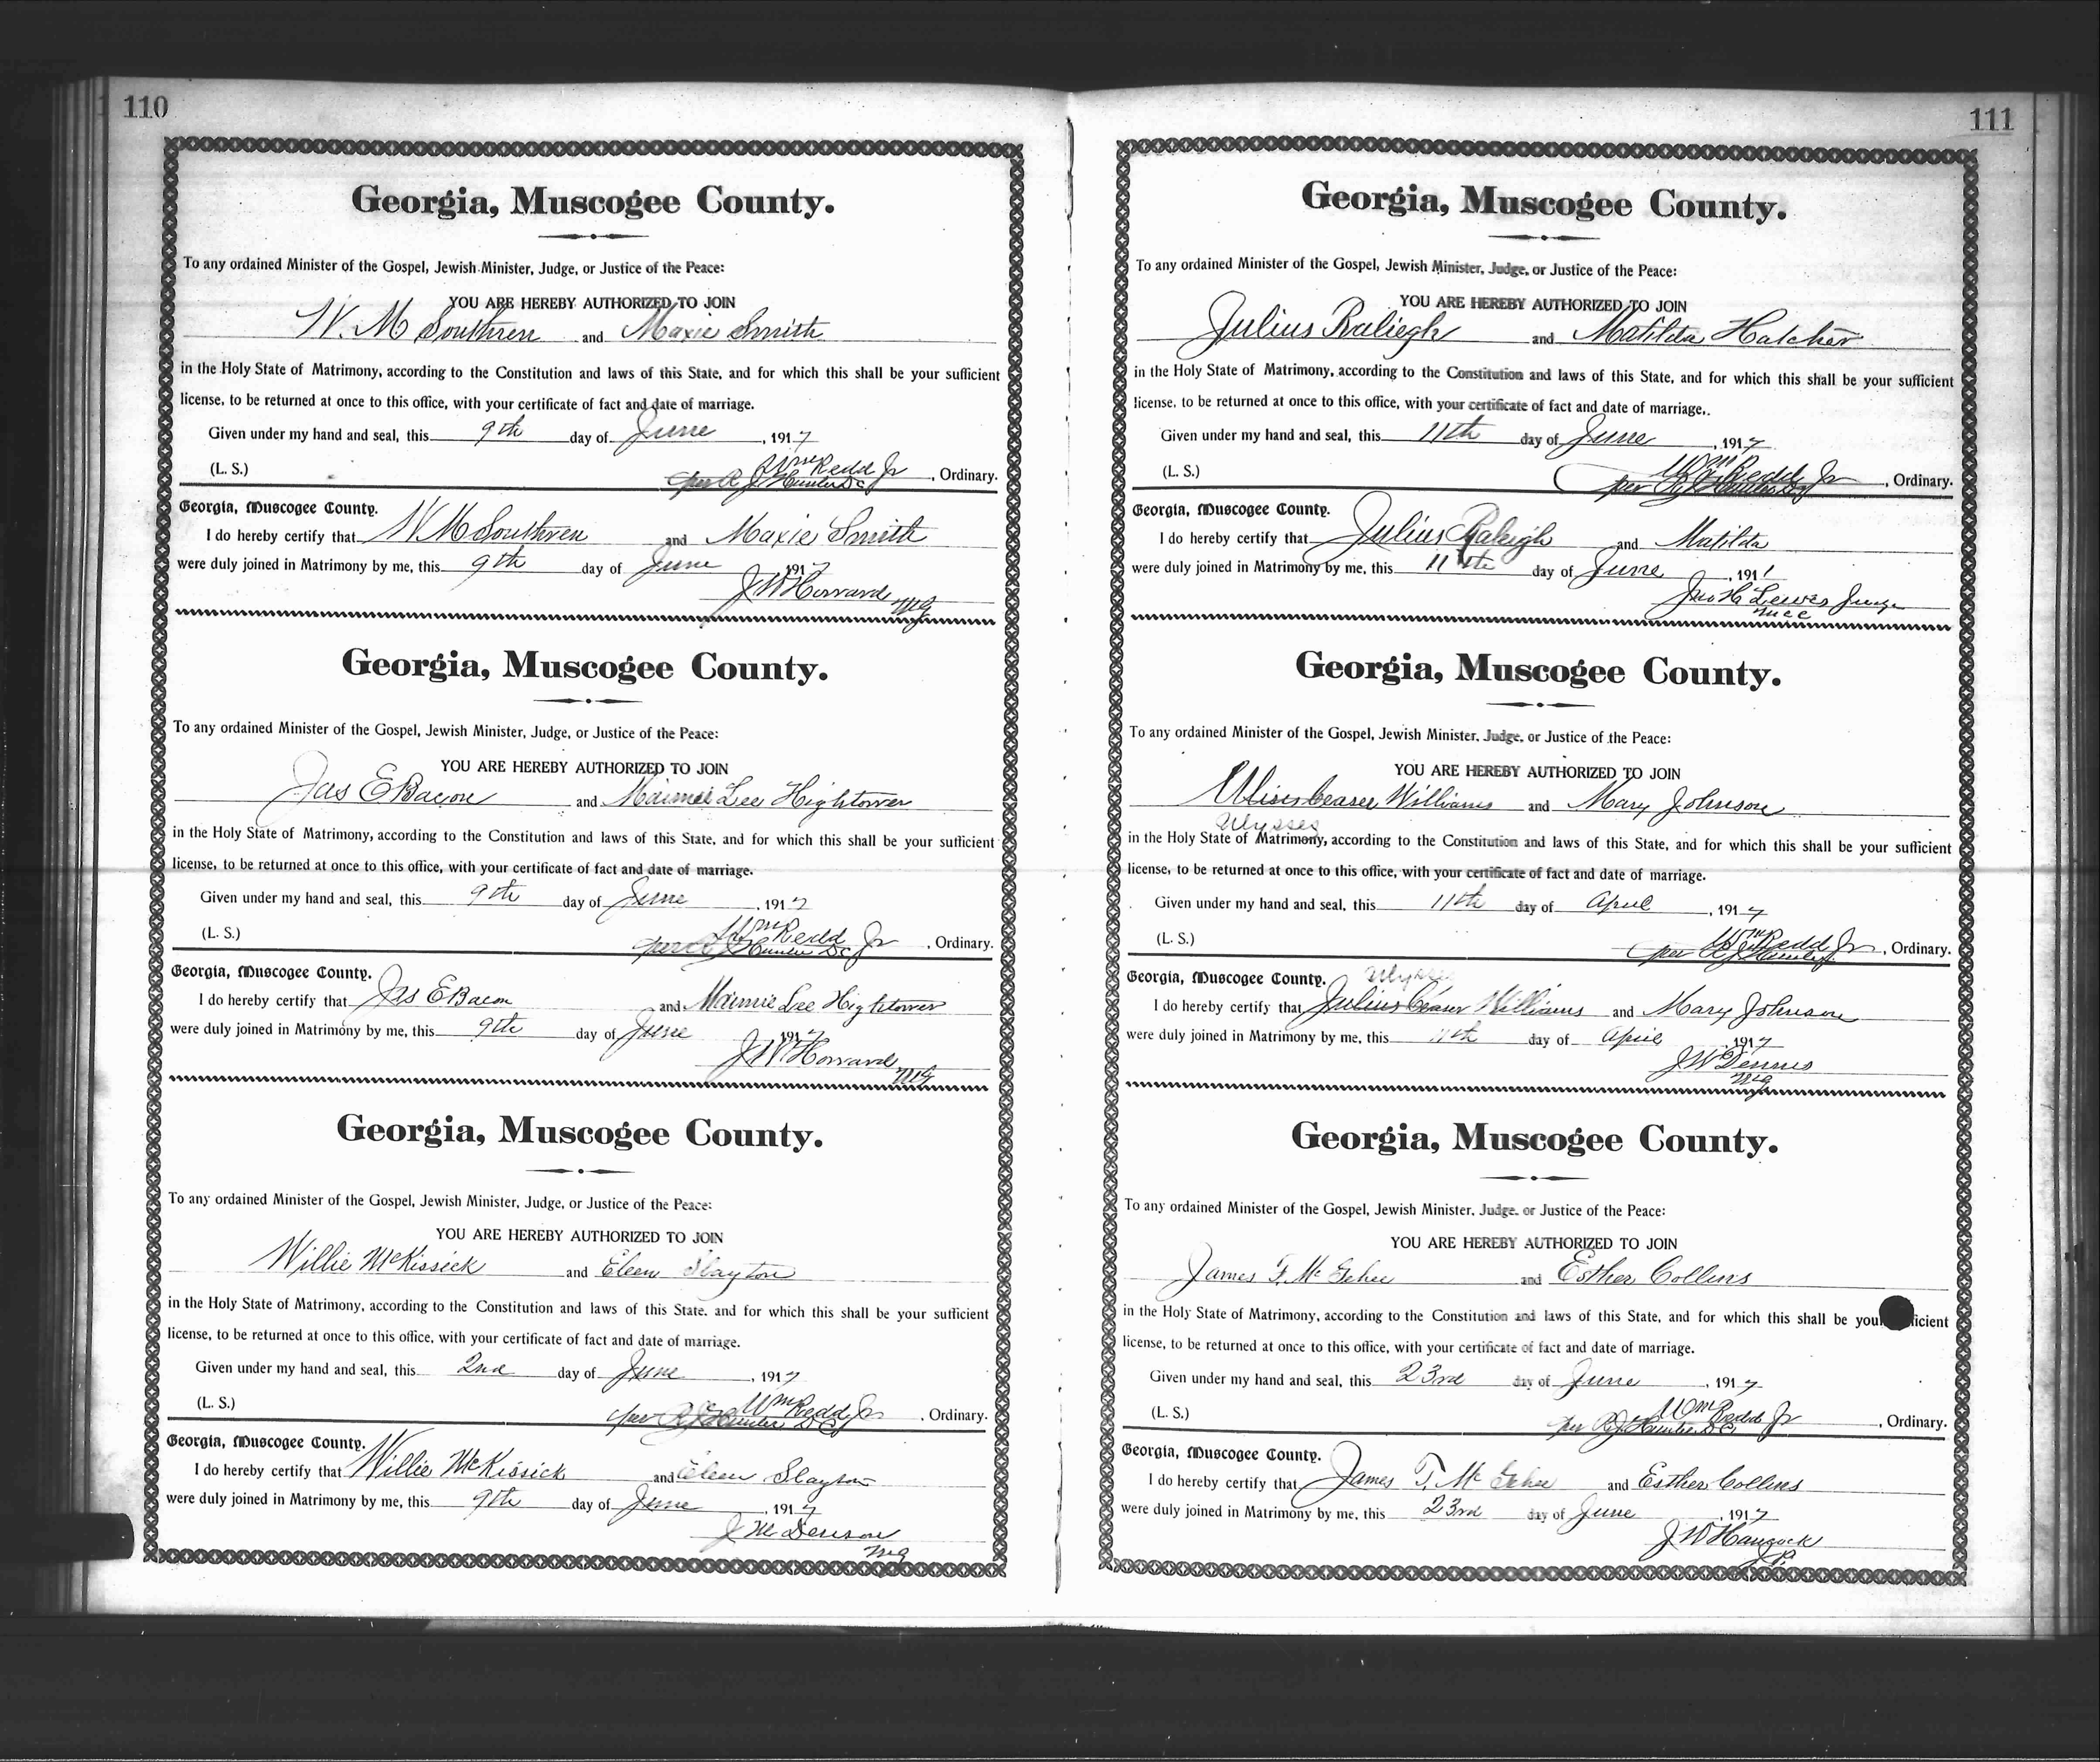 110
Georgia, Muscogee County.
To any ordained Minister of the Gospel, Jewish Minister, Judge, or Justice of the Peace:
YOU ARE HEREBY AUTHORIZED TO JOIN
W. M Southren and Maxie Smith
in the Holy State of Matrimony, according to the Constitution and laws of this State, and for which this shall be your sufficient
license, to be returned at once to this office, with your certificate of fact and date of marriage.
Given under my hand and seal, this 9th day of June, 1917
(L. S.) Wm Redd Jr, Ordinary.
per R J Hunter D C
Georgia, Muscogee County.
I do hereby certify that W M Southren and Maxie Smith
were duly joined in Matrimony by me, this 9th day of June 1917
J W Howard
MG
Georgia, Muscogee County.
To any ordained Minister of the Gospel, Jewish Minister, Judge, or Justice of the Peace:
YOU ARE HEREBY AUTHORIZED TO JOIN
Jas E Bacon and Maimei Lee Hightower
in the Holy State of Matrimony, according to the Constitution and laws of this State, and for which this shall be your sufficient
license, to be returned at once to this office, with your certificate of fact and date of marriage.
Given under my hand and seal, this 9th day of June, 1917
(L. S.) Wm Redd Jr, Ordinary.
per R J Hunter D C
Georgia, Muscogee County.
I do hereby certify that Jas E Bacon and Maimie Lee Hightower
were duly joined in Matrimony by me, this 9th day of June 1917
J W Howard
MG
Georgia, Muscogee County.
To any ordained Minister of the Gospel, Jewish Minister, Judge, or Justice of the Peace:
YOU ARE HEREBY AUTHORIZED TO JOIN
Willie McKissick and Eleen Slayton
in the Holy State of Matrimony, according to the Constitution and laws of this State, and for which this shall be your sufficient
license, to be returned at once to this office, with your certificate of fact and date of marriage.
Given under my hand and seal, this 2nd day of June, 1917
(L. S.) Wm Redd Jr, Ordinary.
per R J Hunter D C
Georgia, Muscogee County.
I do hereby certify that Willie McKissick and Eleen Slayton
were duly joined in Matrimony by me, this 9th day of June, 1917
J M Denson
MG
111
Georgia, Muscogee County.
To any ordained Minister of the Gospel, Jewish Minister, Judge, or Justice of the Peace:
YOU ARE HEREBY AUTHORIZED TO JOIN
Julius Raliegh and Matilda Hatcher
in the Holy State of Matrimony, according to the Constitution and laws of this State, and for which this shall be your sufficient
license, to be returned at once to this office, with your certificate of fact and date of marriage.
Given under my hand and seal, this 11th day of June, 1917
(L. S.) Wm Redd Jr, Ordinary.
per R J Hunter
Georgia, Muscogee County.
I do hereby certify that Julius Raleigh and Matilda
were duly joined in Matrimony by me, this 11th day of June, 191
Jno H Lewis Judge
Georgia, Muscogee County.
To any ordained Minister of the Gospel, Jewish Minister, Judge, or Justice of the Peace:
YOU ARE HEREBY AUTHORIZED TO JOIN
Williams and Mary Johnson
Ulysses
in the Holy State of Matrimony, according to the Constitution and laws of this State, and for which this shall be your sufficient
license, to be returned at once to this office, with your certificate of fact and date of marriage.
Given under my hand and seal, this 11th day of April, 1917
(L. S.) Wm Redd Jr, Ordinary.
per R J Hunter
Georgia, Muscogee County. Ulysses
I do hereby certify that Julius Ceaser Williams and Mary Johnson
were duly joined in Matrimony by me, this 11th day of April, 1917
J W Dennis
MG
Georgia, Muscogee County.
To any ordained Minister of the Gospel, Jewish Minister, Judge, or Justice of the Peace:
YOU ARE HEREBY AUTHORIZED TO JOIN
James T. McGehee and Esther Collins
in the Holy State of Matrimony, according to the Constitution and laws of this State, and for which this shall be you icient
license, to be returned at once to this office, with your certificate of fact and date of marriage.
Given under my hand and seal, this 23rd day of June, 1917
(L. S.) Wm Redd Jr, Ordinary.
per R J Hunter D C
Georgia, Muscogee County.
I do hereby certify that James T. McGehee and Esther Collins
were duly joined in Matrimony by me, this 23rd day of June, 1917
J W Hancock
J.P.